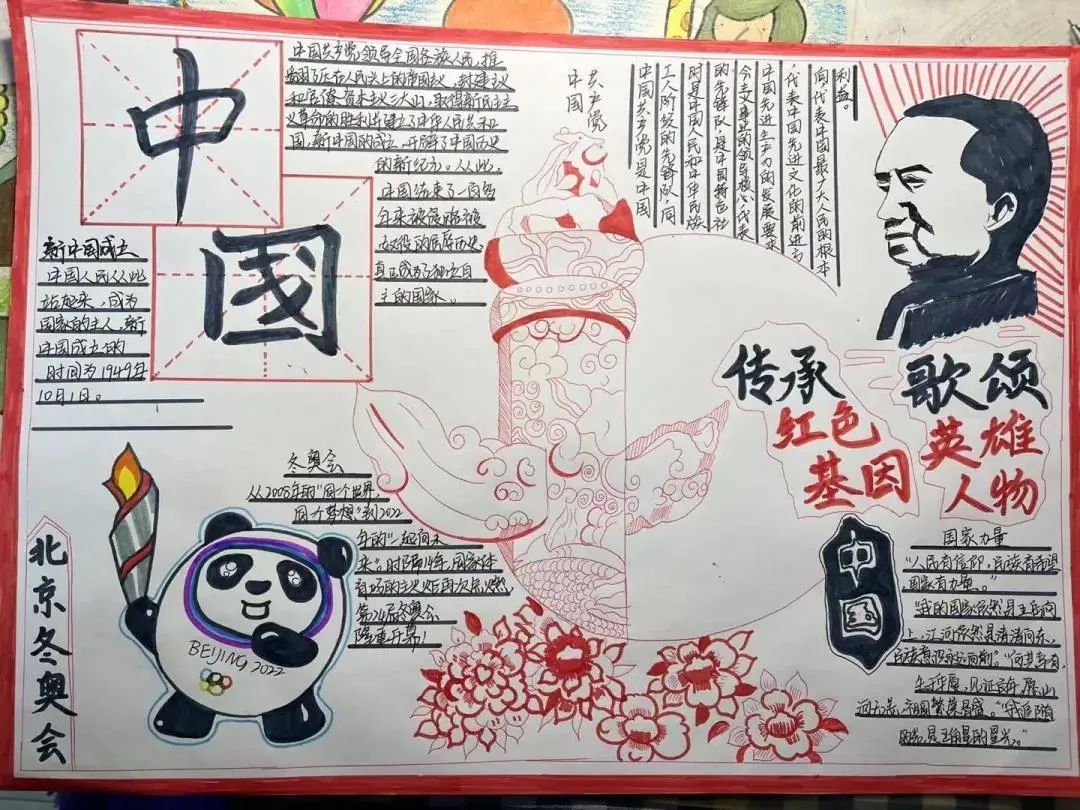 中
国
中国共产党领导全国各族人民,推
翻了压在人民头上的帝国主义、封建主义
和官僚资本主义三大山,取得新民主主
义革命的胜利并建立了中华人民共和
国,新中国的成立,开辟了中国历史
的新纪元。从此,
中国结束了一百多
年来被侵略被
奴役的屈辱历史,
真正成为了独立自
主的国家。
新中国成立
中国人民从此
站起来,成为
国家的主人,新
中国成立的
时间为1949年
10月1日。
中国
共产党
中国共产党是中国
工人阶级的先锋队,同
时是中国人民和中华民族
的先锋队,是中国特色社
会主义事业的领导核心,代表
中国先进生产力的发展要求
,代表中国先进文化的前进方
向,代表中国最广大人民的根本
利益。
传承
红色
基因
歌颂
英雄
人物
冬奥会
从2008年的“同个世界,
同个梦想”到2022
年的“一起向未
来”,时隔14年,国家体
育场的主火炬再次点燃,
第24届冬奥会
隆重开幕!
北京冬奥会
BEIJING 2022
中国
国家力量
“人民有信仰,民族有希望
国家有力量。”
“我的国家依然是五岳向
上,江河依然是清清向东,
民族意志永远向前”,“何其有幸,
生于华夏,见证百年,愿山
河无恙,祖国繁荣昌盛。”“我追随
的光是五角星的星光。”